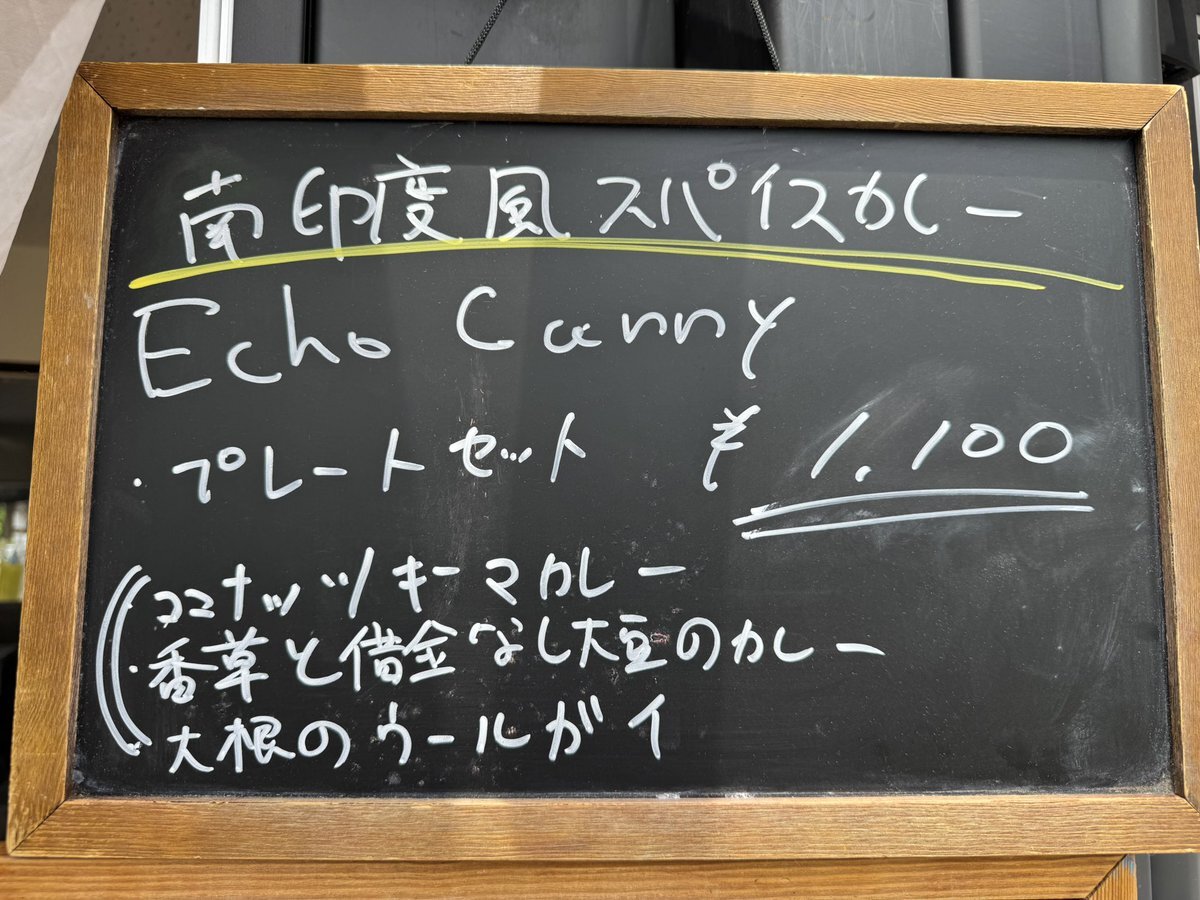 南印度風スパイスカレー
Echo Curry
・プレートセット ¥1,100
ココナッツキーマカレー
・香草と借金なし大豆のカレー
大根のウールガイ